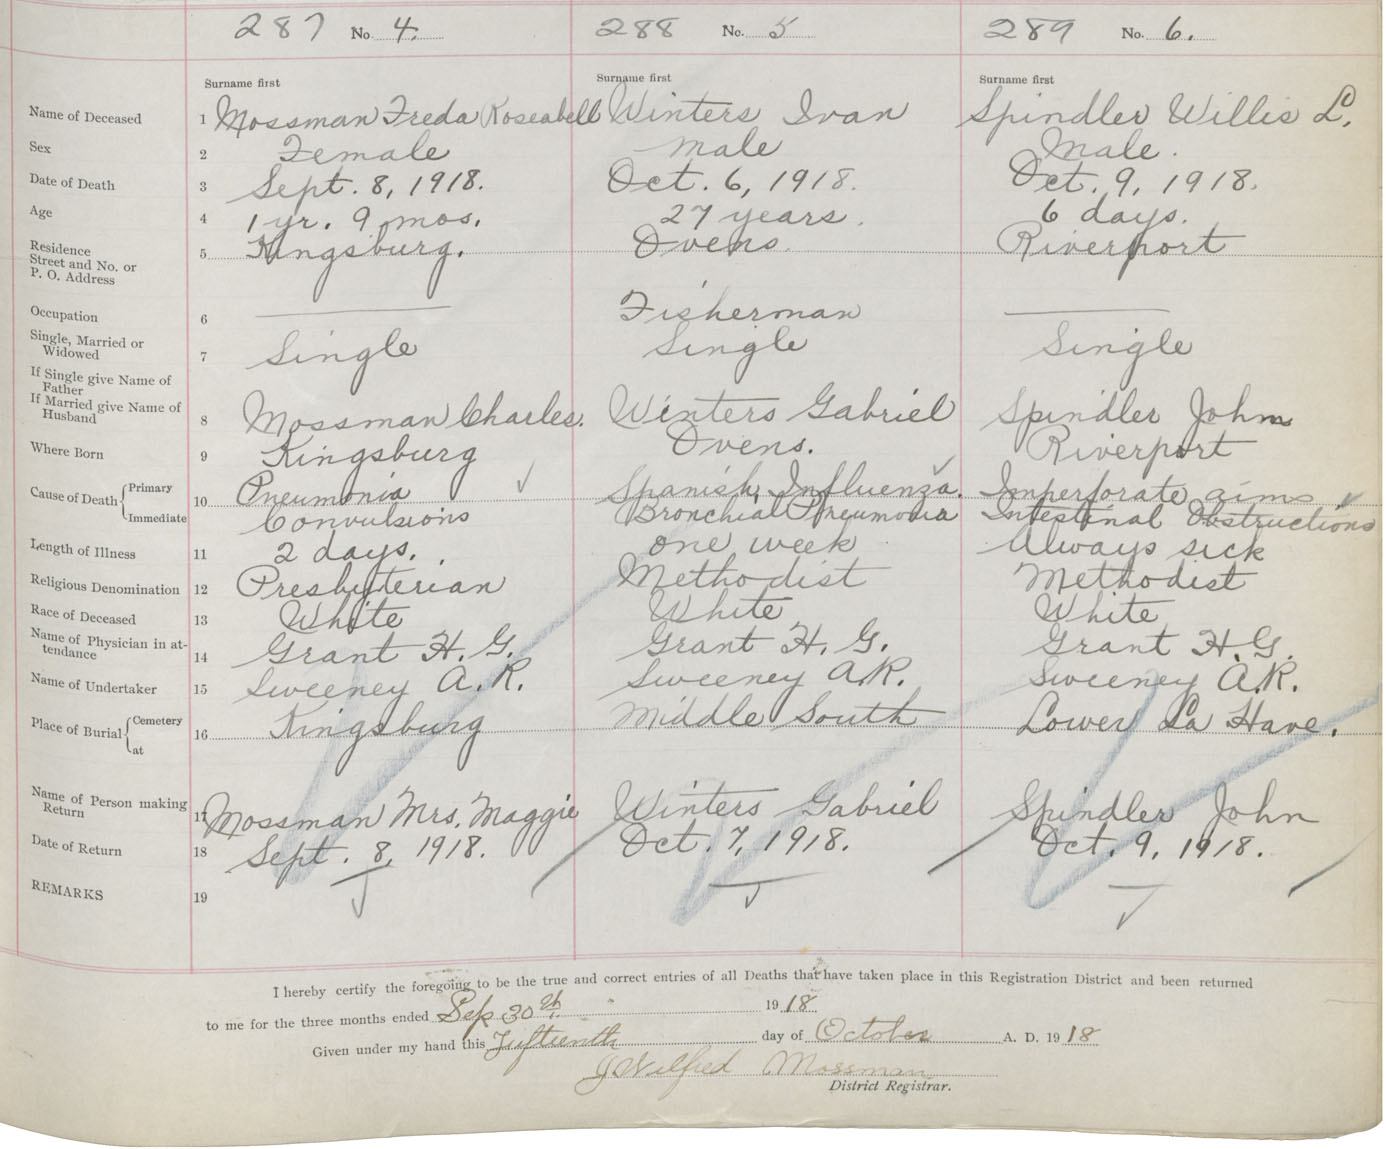 287 No. 4. 288 No. 5 289 No. 6.
Surname first Surname first Surname first
Name of Deceased 1 Mossman Freda Roseabell Winters Ivan Spindler Willis L.
Sex 2 Female male Male.
Date of Death 3 Sept. 8, 1918. Oct. 6, 1918. Oct. 9, 1918.
Age 4 1 yr. 9 mos. 27 years. 6 days.
Residence
Street and No. or
P. O. Address 5 Kingsburg. Ovens. Riverport
Occupation 6 Fisherman
Single, Married or
Widowed 7 Single Single Single
If Single give Name of
Father
If Married give Name of
Husband 8 Mossman Charles. Winters Gabriel Spindler John
Where Born 9 Kingsburg Ovens. Riverport
Cause of Death Primary 10 Pneumonia Spanish Influenza. Imperforate
Immediate Convulsions Bronchial Pneumonia Intestinal Obstructions
Length of Illness 11 2 days. one week Always sick
Religious Denomination 12 Presbyterian Methodist Methodist
Race of Deceased 13 White White White
Name of Physician in at-
tendance 14 Grant H. G. Grant H. G. Grant H. G.
Name of Undertaker 15 Sweeney A. R. Sweeney A.R. Sweeney A.R.
Place of Burial Cemetery
at 16 Kingsburg Middle South Lower La Have.
Name of Person making
Return 17 Mossman Mrs. Maggie Winters Gabriel Spindler John
Date of Return 18 Sept. 8, 1918. Oct. 7, 1918. Oct. 9, 1918.
REMARKS 19
I hereby certify the foregoing to be the true and correct entries of all Deaths that have taken place in this Registration District and been returned
to me for the three months ended Sep 30th 1918
Given under my hand this Fifteenth day of October A. D. 1918
J Wilfred Mossman
District Registrar.